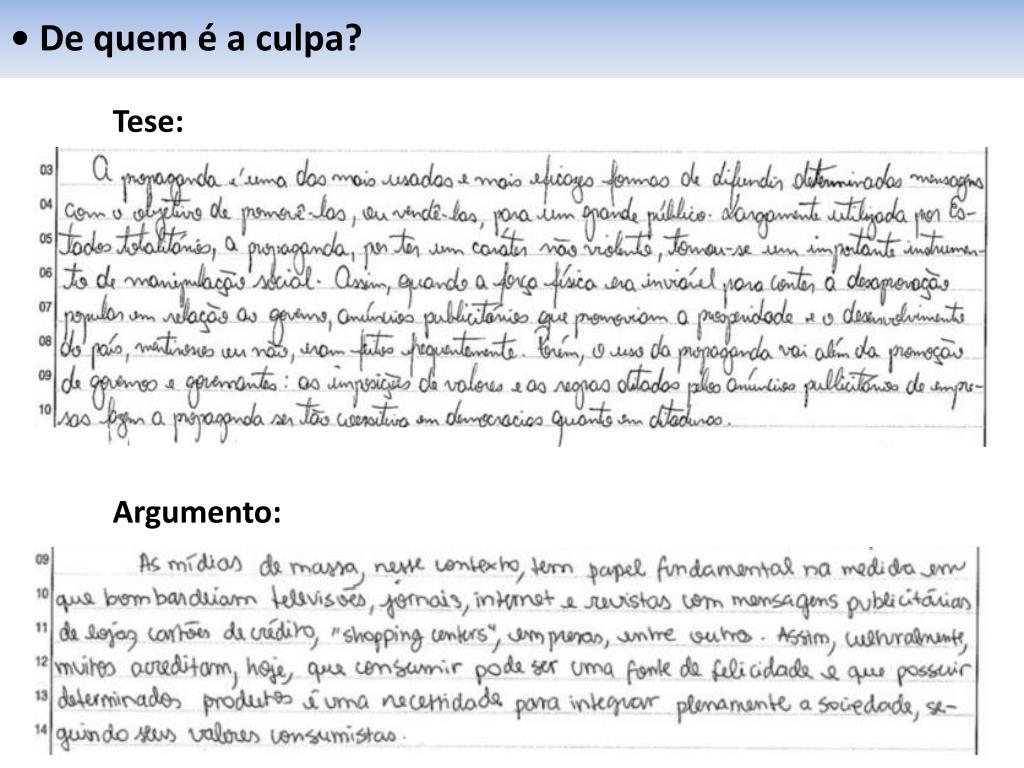 • De quem é a culpa?
Tese:
03 A propaganda é uma das mais usadas e mais eficazes formas de difundir determinadas mensagens
04 com o objetivo de promovê-las, ou vendê-las, para um grande público. Largamente utilizada por Es-
05 tados totalitários, a propaganda, por ter um caráter não violento, tornou-se um importante instrumen-
06 to de manipulação social. Assim, quando a força física era inviável para conter a desaprovação
07 popular em relação ao governo, anúncios publicitários que promoviam a prosperidade e o desenvolvimento
08 do país, mentirosos ou não, eram feitos frequentemente. Porém, o uso da propaganda vai além da promoção
09 de governos e governantes: as imposições de valores e as regras ditadas pelos anúncios publicitários de empre-
10 sas fazem a propaganda ser tão coercitiva em democracias quanto em ditaduras.
Argumento:
09 As mídias de massa, nesse contexto, tem papel fundamental na medida em
10 que bombardeiam televisões, jornais, internet e revistas com mensagens publicitárias
11 de lojas, cartões de crédito, "shopping centers", empresas, entre outro. Assim, culturalmente,
12 muitos acreditam, hoje, que consumir pode ser uma fonte de felicidade e que possuir
13 determinados produtos é uma necessidade para integrar plenamente a sociedade, se-
14 guindo seus valores consumistas.